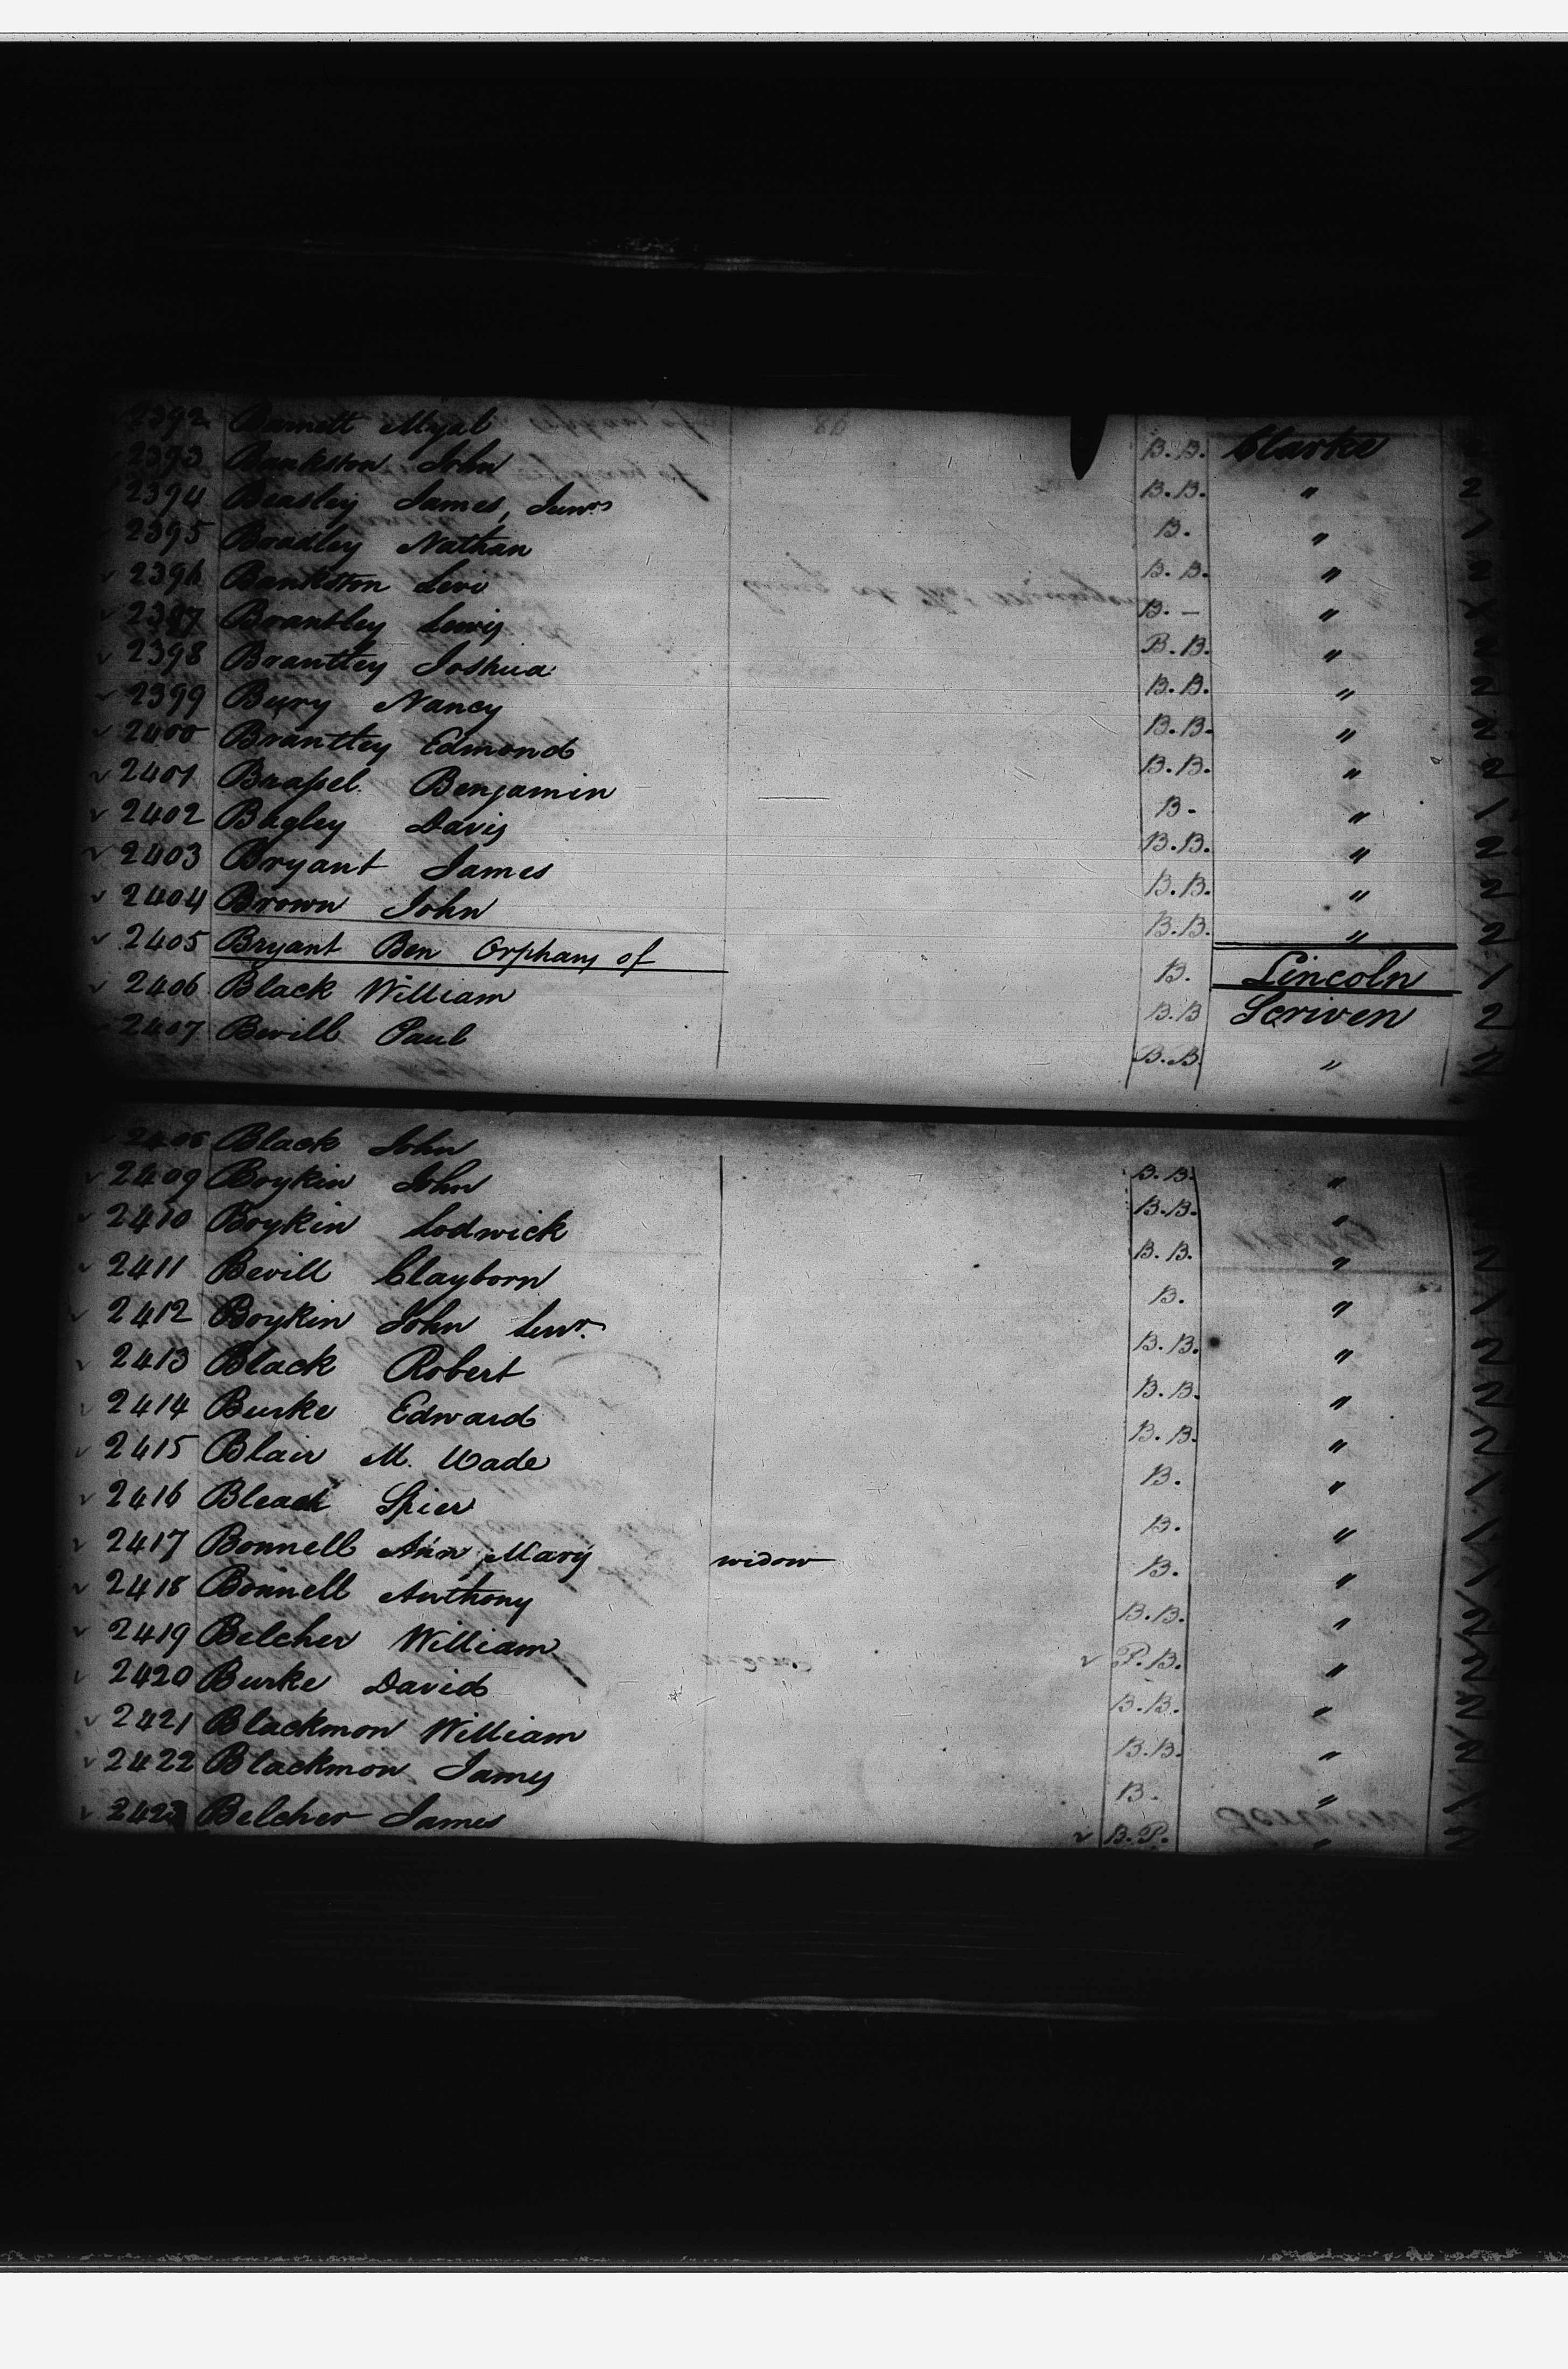 2392 Barnett Myal B.B. Clarke
2393 Bankston John B.B. " 2
2394 Beasley James, Junr B. " 1
2395 Bradley Nathan B.B. " 2
2396 Bankston Levi B. - "
2397 Brantley Lewis B.B. " 2
2398 Brantley Joshua B.B. " 2
2399 Bury Nancy B.B. " 2
2400 Brantley Edmond B.B. " 2
2401 Brassel Benjamin B. " 1
2402 Bagley Davis B.B. " 2
2403 Bryant James B.B. " 2
2404 Brown John B.B. " 2
2405 Bryant Ben Orphans of B. Lincoln 1
2406 Black William B.B Scriven 2
2407 Bevill Paul B.B. "
2408 Black John B.B. "
2409 Boykin John B.B. "
2410 Boykin Lodwick B.B. " 2
2411 Bevill Clayborn B. " 1
2412 Boykin John Senr. B.B. " 2
2413 Black Robert B.B. " 2
2414 Burke Edward B.B. " 2
2415 Blair M. Wade B. " 1
2416 Black Spier B. " 1
2417 Bonnell Ann Mary widow B. " 1
2418 Bonnell Anthony B.B. " 2
2419 Belcher William P.B. " 2
2420 Burke David B.B. " 2
2421 Blackmon William B.B. " 2
2422 Blackmon James B. " 1
2423 Belcher James B.P. " 2